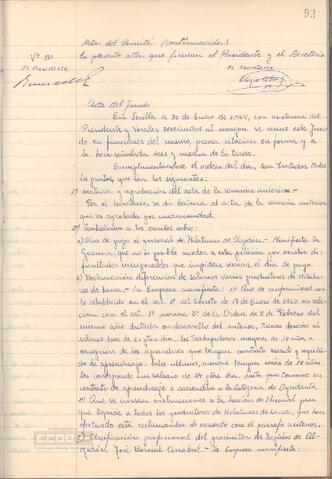 93
Acta del Comité (continuación)
la presente acta que firman el Presidente y el Secretario
Vº Bº
El Presidente
El Secretario
Acta del Jurado
En Sevilla a 30 de Enero de 1964, con asistencia del
Presidente y Vocales reseñados al margen se reune este Jura-
do en funciones del mismo, previa citación en forma y a
la hora señalada seis y media de la tarde.
Cumplimentándose el orden del día, son tratados todos
los puntos, que son los siguientes:
1º Lectura y aprobación del acta de la reunión anterior =
Por el Secretario, se da lectura al acta de la reunión anterior
que es aprobada por unanimidad.
2º Contestación a los escritos sobre:
a) Días de pago al personal de Hilaturas de Algodón = Manifiesta la
Gerencia que no es posible acceder a esta petición por existir di-
ficultades insuperables que impiden variar el día de pago.
b) Reclamación diferencias de salarios varios productores de Hilatu-
ras de Lana = La Empresa manifiesta: 1º Que de conformidad con
lo establecido en el artº 1º del Decreto de 17 de Enero de 1963 en rela-
ción con el artº 1º norma 2ª de la Orden de 5 de Febrero del
mismo año dictada en desarrollo del anterior, tienen derecho al
salario base de 60 ptas día, los trabajadores mayores de 18 años, a
excepción de los aprendices que tengan contrato escrito y registra-
do de aprendizaje. Estos últimos, aunque tengan más de 18 años
les corresponde un salario de 24 ptas día, hasta que termine su
contrato de aprendizaje o asciendan a la categoría de Ayudante.
2º Que se cursan instrucciones a la Sección de Personal para
que liquide a todos los productores de Hilaturas de Lana, que han
efectuado esta reclamación de acuerdo con el párrafo anterior.
c) Clasificación profesional del productor de Tejidos de Al-
godón José Bernal Arrabal = La Empresa manifiesta:
CCOO